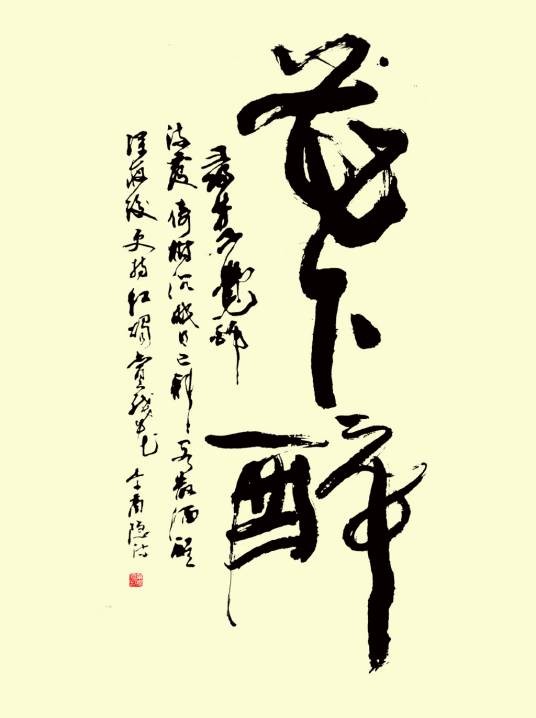 花下醉
尋芳不覺醉
流霞倚樹沉眠日已斜客散酒醒
深夜後更持紅燭賞殘花 李商隐诗